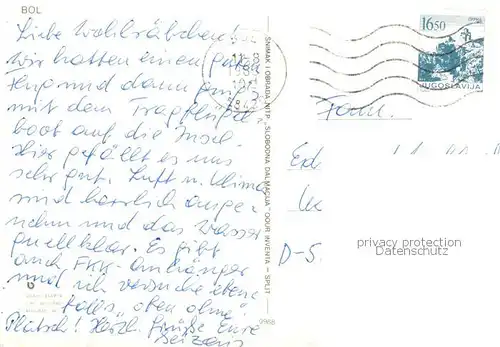 BOL
Liebe Wohlräbchen!
wir hatten einen guten
Flug und dann ging's
mit dem Tragflügel-
boot auf die Insel.
Hier gefällt es uns
sehr gut. Luft u. Klima
sind herrlich ange-
nehm und das Wasser
quellklar. Es gibt
auch FKK-Anhänger
und ich versuche eben-
falls "oben ohne".
Plätsch! Herzl. Grüße Eure
SNIMAK I OBRADA: NTP "SLOBODNA DALMACIJA" OOUR INVENTA - SPLIT
9988
16.50
JUGOSLAVIJA
Fam.
D-5
privacy protection
Datenschutz